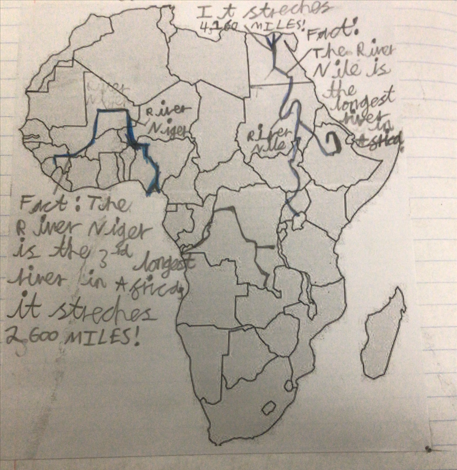 It streches
4,160 MILES!
Fact:
The River
Nile is
the
longest
river
in
Africa
River
Niger
River
Nile
Fact: The
River Niger
is the 3rd longest
river in Africa
it streches
2,600 MILES!